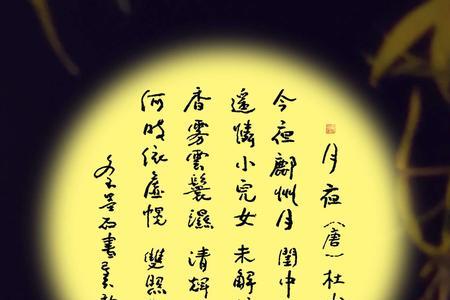 月夜（唐）杜
今夜鄜州月 閨中
遥憐小兒女 未解
香雾雲鬟濕 清輝
何時依虛幌 雙照